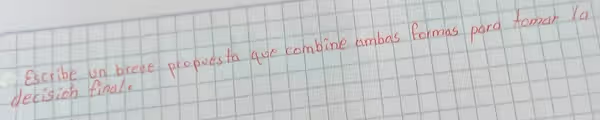 Escribe un breve propuesta que combine ambas formas para tomar la
decisión final.